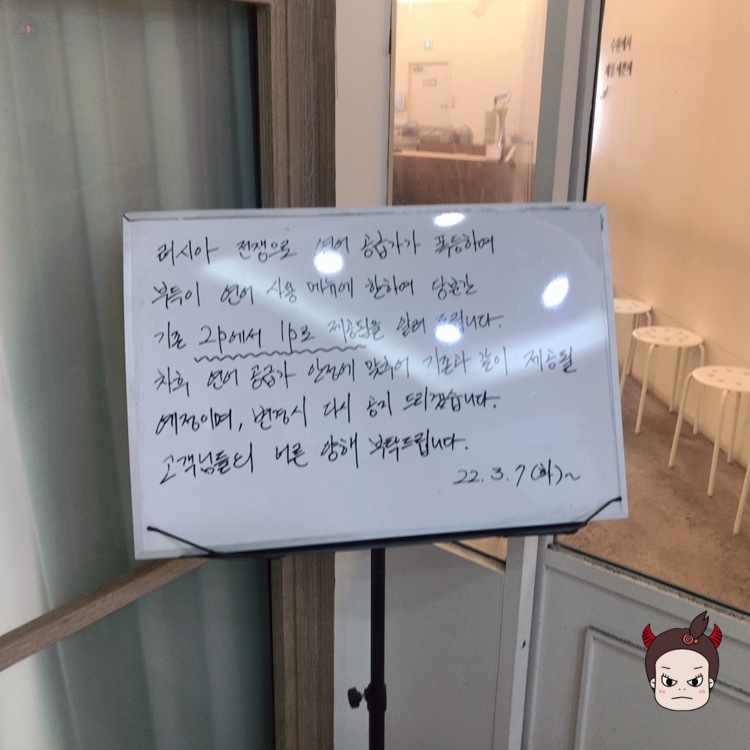 러시아 전쟁으로 연어 공급가가 폭등하며
부득이 연어 사용 메뉴에 한하여 당분간
기존 2p에서 1p로 제공됨을 알려 드립니다.
차후 연어 공급가 안정에 맞춰어 기존과 같이 제공될
예정이며, 변경시 다시 공지 드리겠습니다.
고객님들의 너른 양해 부탁드립니다.
22. 3. 7 (화)~